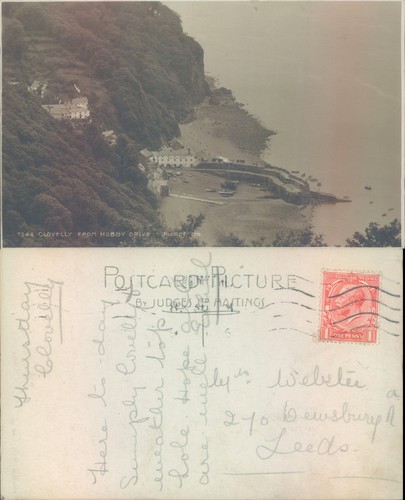 7244 CLOVELLY FROM HOBBY DRIVE
JUDGES LTD
POSTCARD PICTURE
BY JUDGES LTD HASTINGS
Thursday
Clovelly
Here to-day
Simply lovely
weather top
hole. Hope
are well
Webster
270 Dewsbury Rd
Leeds.
1 ONE PENNY 1